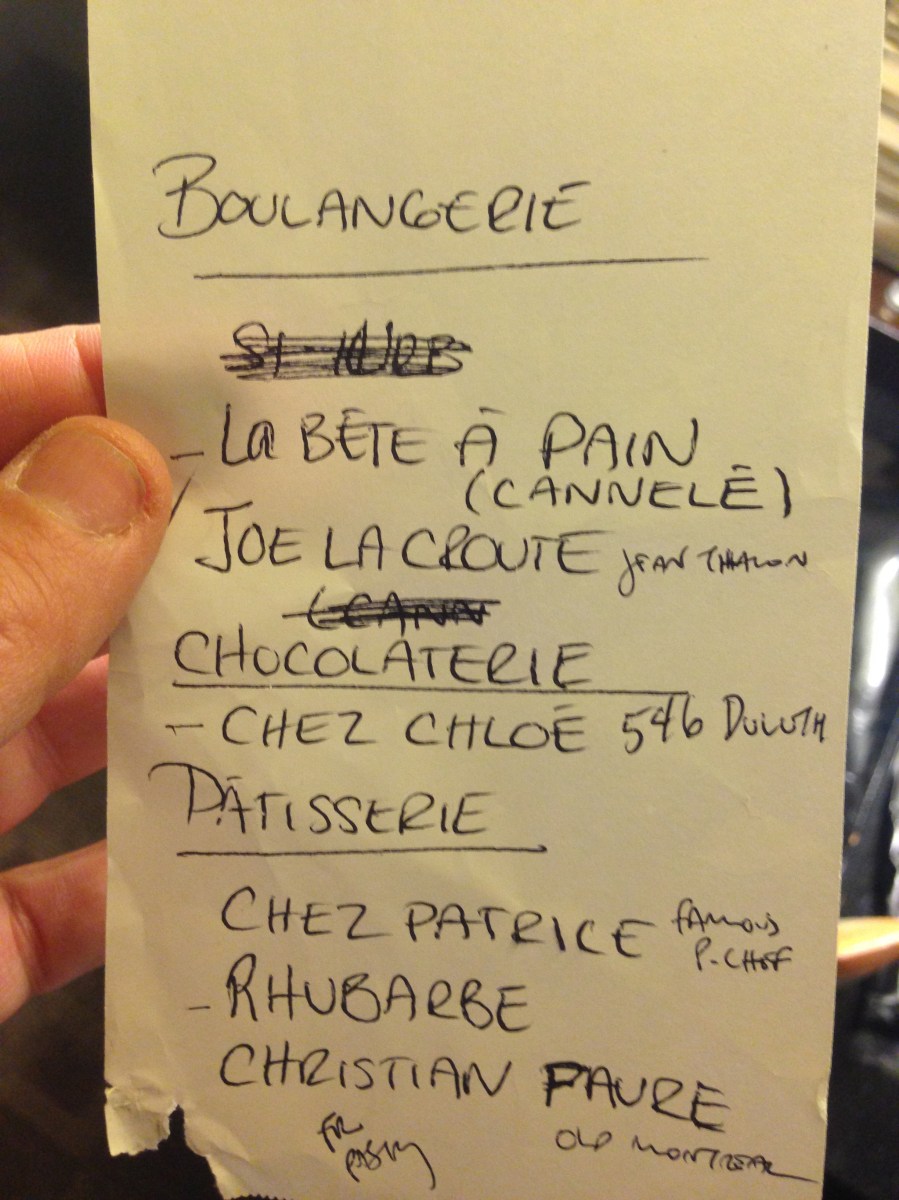 BOULANGERIE
- La BÊTE À PAIN
(CANNELÉ)
JOE LA CROUTE JEAN THALON
CHOCOLATERIE
- CHEZ CHLOÉ 546 DULUTH
PÂTISSERIE
CHEZ PATRICE FAMOUS
P-CHEF
- RHUBARBE
CHRISTIAN FAURE
FR OLD MONTREAL
PASTRY